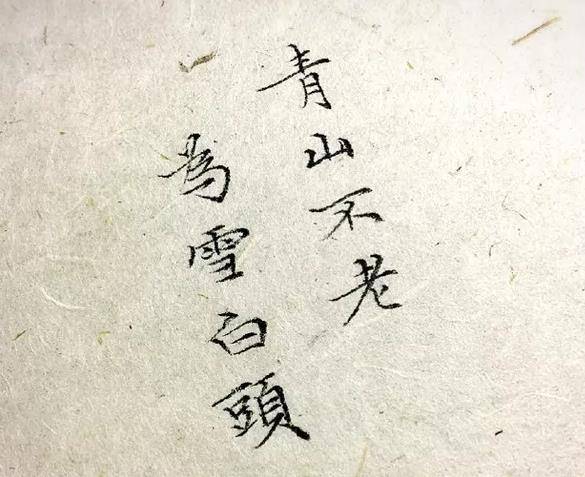 青山不老
為雪白頭